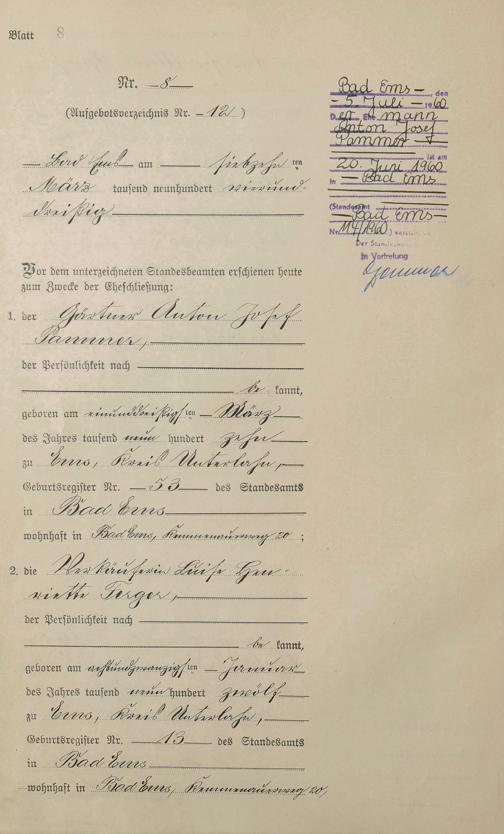 Blatt 8
Nr. 8
(Aufgebotsverzeichnis Nr. 12)
Bad Ems am siebzehn ten
März tausend neunhundert vierund-
dreißig
Bad Ems, den
5. Juli 1960
D er Ehemann
Anton Josef
Pammer
ist am
20. Juni 1960
in Bad Ems
(Standesamt
Bad Ems
Nr. 114/1960)
Der Standesbeamte
In Vertretung
Vor dem unterzeichneten Standesbeamten erschienen heute
zum Zwecke der Eheschließung:
1. der Gärtner Anton Josef
Pammer,
der Persönlichkeit nach
be kannt,
geboren am einunddreißigs ten März
des Jahres tausend neun hundert zehn
zu Ems, Kreis Unterlahn,
Geburtsregister Nr. 53 des Standesamts
in Bad Ems
wohnhaft in Bad Ems, Kemmenauerweg 20;
2. die Verkäuferin Luise Hen-
riette Ferger,
der Persönlichkeit nach
be kannt,
geboren am achtundzwanzigs ten Januar
des Jahres tausend neun hundert zwölf
zu Ems, Kreis Unterlahn,
Geburtsregister Nr. 13 des Standesamts
in Bad Ems
wohnhaft in Bad Ems, Kemmenauerweg 20,